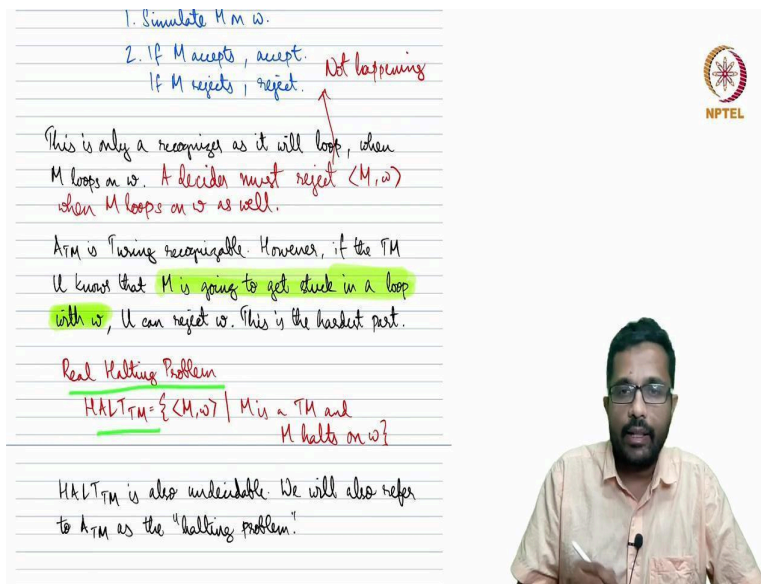 1. Simulate M on w.
2. If M accepts, accept.
If M rejects, reject.
Not happening
NPTEL
This is only a recognizer as it will loop, when
M loops on w. A decider must reject ⟨M,w⟩
when M loops on w as well.
A_TM is Turing recognizable. However, if the TM
U knows that M is going to get stuck in a loop
with w, U can reject w. This is the hardest part.
Real Halting Problem
HALT_TM = {⟨M,w⟩ | M is a TM and
M halts on w}
HALT_TM is also undecidable. We will also refer
to A_TM as the "halting problem".